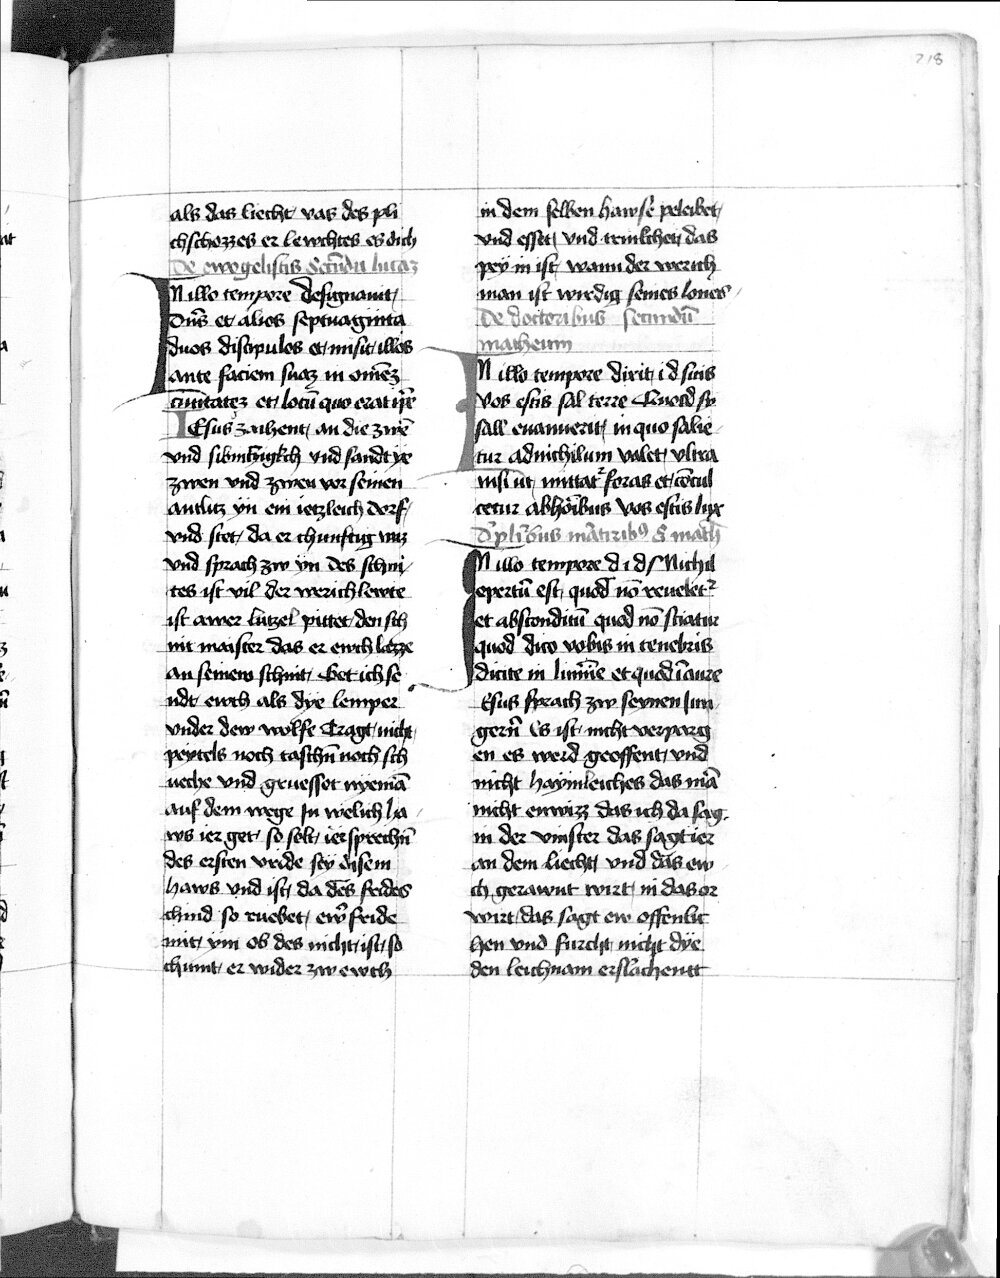 218
als das liecht vas des pli
chschozzes er lewchtes es dich
De ewogelistis Secūdū lucaz
IN illo tempore designauit
dn̄s et alios septuaginta
duos discipulos et misit illos
ante faciem suaz in om̄ez
ciuitatez et locū quo erat
IEsus zaihent an die zwē
vnd sibinczigkch vnd sandt ye
zwen vnd zwen vor seinen
antlitz yn ein ietzleich dorf
vnd stet da er chunftig waz
vnd sprach zw yn Des schni
tes ist vil der werichlewte
ist awer lützel pittet den sch
nit maister das er ewch lazze
an seinem schnit Get ich se
ndt ewch als dye lemper
vnder dew wolfe Tragt nicht
peytels noch taschn̄ noch sch
ueche vnd gruesset nyemā
auf dem wege In welich ha
ws ier get so solt ier sprechn̄
des ersten vride sey disem
haws vnd ist da des frides
chind so ruebet ewr̄ fride
mit ym ob des nicht ist so
chumt er wider zw ewch
in dem selben hawse peleibet
vnd esset vnd trinkchet das
pey in ist wann der werich
man ist wirdig seines lones
De doctoribus secundū
matheum
IN illo tempore dixit i d suis
vos estis sal terre Quod sy
sall euanuerit in quo salie
tur ad nichilum valet vltra
nisi ut mittat foras et cōcul
cetur ab hōibus Vos estis lux
D plībus mātiribꝰ S math
IN illo tempore d i d s Nichil
opertū est quod nō reuelet
et absconditū quod nō sciatur
quod dico vobis in tenebris
dicite in lumīe et quod ī aure
Esus sprach zw seynen Jun
gern̄ Es ist nicht verporg
en es werd geoffent vnd
nicht haymleiches das mā
nicht enwizz das ich da sag
in der vinster das sagt ier
an dem liecht vnd das ew
ch gerawnt wirt in das or
wirt das sagt ew offenlic
hen vnd furcht nicht dye
den leichnam erslachentt